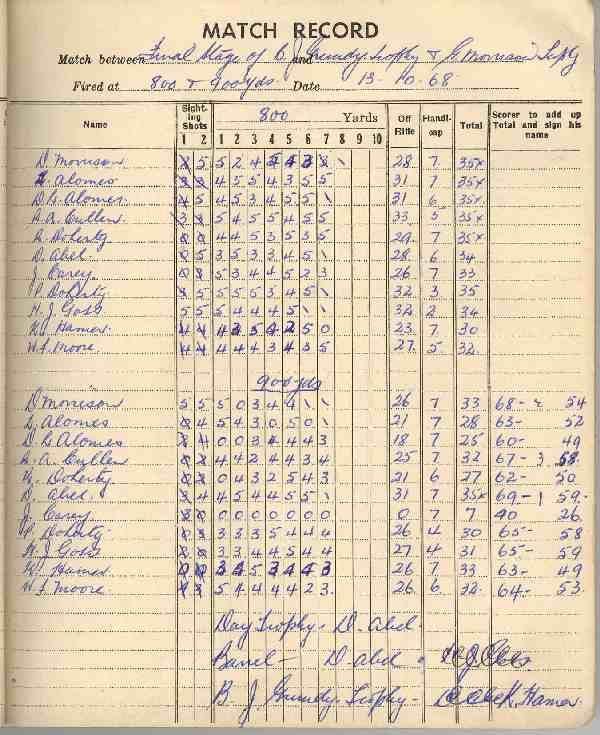 MATCH RECORD
Match between Final Stage of B. J. Grundy Trophy & G. Morrison
and
Fired at 800 & 900 yds Date 13-10-68
Name Sighting Shots 800 Yards Off Rifle Handicap Total Scorer to add up Total and sign his name
1 2 1 2 3 4 5 6 7 8 9 10
D. Morrison 5 5 2 4 5 4 3 3 \ 28 7 35x
L. Alomes 4 5 5 4 3 5 5 31 7 35x
D.G. Alomes 4 5 4 5 3 4 5 5 \ 31 6 35x
A. A. Cullen 3 3 5 4 5 5 4 5 5 33 5 35x
R. Doherty 4 4 5 3 5 3 5 29 7 35x
D. Abel 0 5 3 5 3 3 4 5 \ 28 6 34
J. Carey 5 3 4 4 5 2 3 26 7 33
P. Doherty 5 5 5 5 3 4 5 \ 32 3 35
H. J. Goss 5 5 5 4 4 4 5 \ \ 32 2 34
K. Hamer 4 4 4 3 5 4 2 5 0 23 7 30
W. L. Moore 4 4 4 4 4 3 4 3 5 27 5 32
900 yds
D Morrison 5 5 5 0 3 4 4 \ \ 26 7 33 68- 2 54
L. Alomes 0 4 5 4 3 0 5 0 \ 21 7 28 63- 52
D G Alomes 4 0 0 3 4 4 4 3 18 7 25 60- 49
A. A. Cullen 4 4 2 4 4 3 4 25 7 32 67- 3 58
R. Doherty 0 4 3 2 5 4 3 21 6 27 62- 50
D. Abel 4 4 5 4 4 5 5 \ 31 7 35x 69- 1 59-
J. Carey 0 0 0 0 0 0 0 0 7 7 40 26
P. Doherty 0 3 3 3 3 5 4 4 4 26 4 30 65- 58
H. J Goss 3 3 4 4 5 4 4 27 4 31 65- 59
K. Hamer 0 0 3 4 5 3 4 4 3 26 7 33 63- 49
W L Moore 5 4 4 4 4 2 3 26 6 32 64- 53
Day Trophy - D. Abel
Barrel - D. Abel
B. J Grundy Trophy - K. Hamer